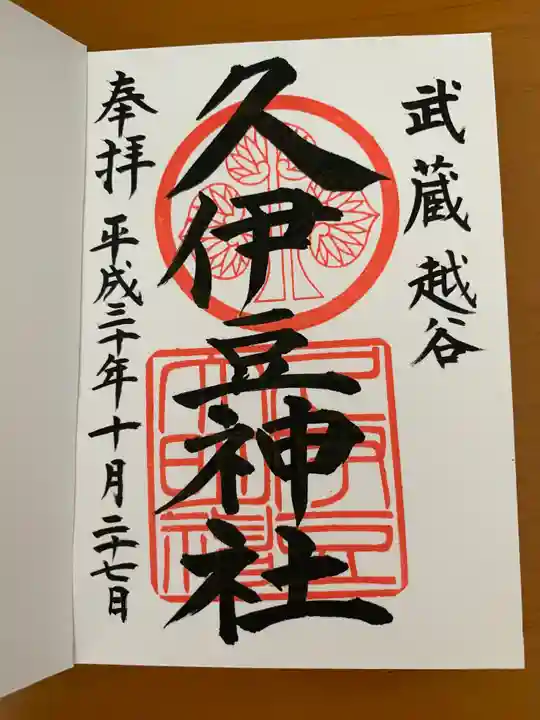 武蔵越谷
久伊豆神社
奉拝 平成三十年十月二十七日